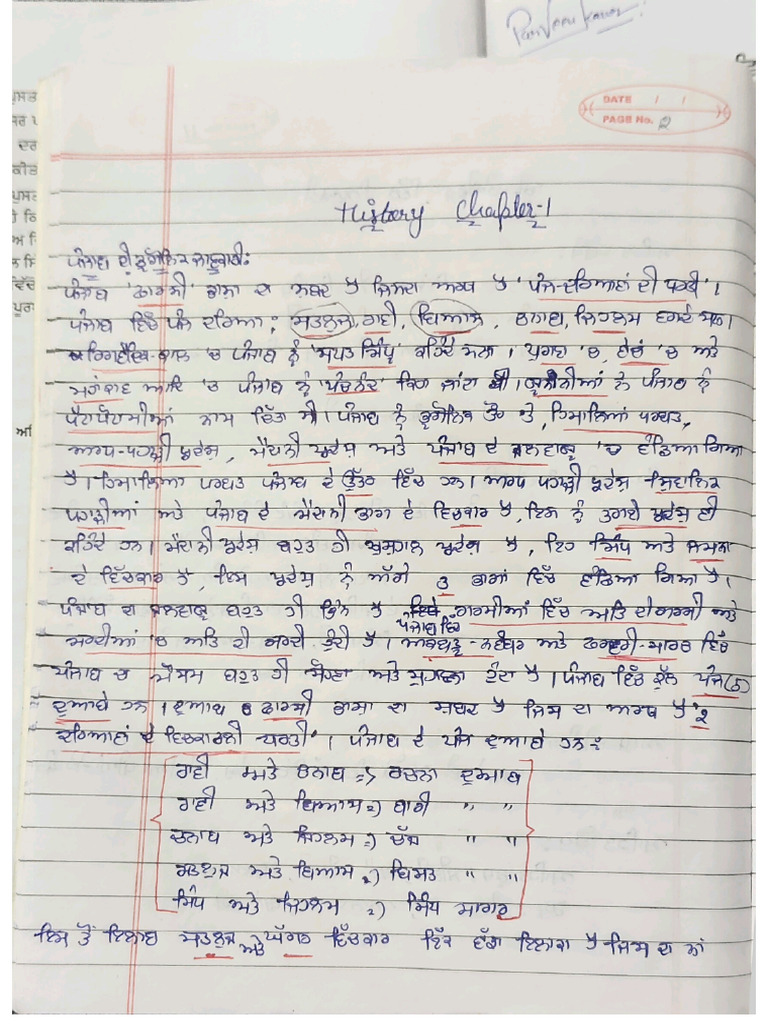 Parveen Kaur
DATE / /
PAGE No. 2
History Chapter-1
ਪੰਜਾਬ ਦੀ ਭੂਗੋਲਿਕ ਜਾਣਕਾਰੀ:
ਪੰਜਾਬ 'ਫਾਰਸੀ' ਭਾਸ਼ਾ ਦਾ ਸ਼ਬਦ ਹੈ ਜਿਸਦਾ ਅਰਥ ਹੈ 'ਪੰਜ-ਦਰਿਆਵਾਂ ਦੀ ਧਰਤੀ'।
ਪੰਜਾਬ ਵਿੱਚ ਪੰਜ ਦਰਿਆ; ਸਤਲੁਜ, ਰਾਵੀ, ਬਿਆਸ, ਚਨਾਬ, ਜਿਹਲਮ ਵਗਦੇ ਸਨ।
ਰਿਗਵੈਦਿਕ ਕਾਲ 'ਚ ਪੰਜਾਬ ਨੂੰ 'ਸਪਤ ਸਿੰਧੂ' ਕਹਿੰਦੇ ਸਨ। ਪੁਰਾਣ 'ਚ, ਵੇਦਾਂ 'ਚ ਅਤੇ
ਆਦਿ 'ਚ ਪੰਜਾਬ ਨੂੰ 'ਪੰਚਨੰਦ' ਕਿਹਾ ਜਾਂਦਾ ਸੀ। ਯੂਨਾਨੀਆਂ ਨੇ ਪੰਜਾਬ ਨੂੰ
ਪੈਂਟਾਪੋਟਾਮੀਆਂ ਨਾਮ ਦਿੱਤਾ ਸੀ। ਪੰਜਾਬ ਨੂੰ ਭੂਗੋਲਿਕ ਤੌਰ ਤੇ, ਹਿਮਾਲਿਆ ਪਰਬਤ,
ਅਰਧ-ਪਹਾੜੀ ਪ੍ਰਦੇਸ਼, ਮੈਦਾਨੀ ਪ੍ਰਦੇਸ਼ ਅਤੇ ਪੰਜਾਬ ਦੇ ਜਲਵਾਯੂ 'ਚ ਵੰਡਿਆ ਗਿਆ
ਹੈ। ਹਿਮਾਲਿਆ ਪਰਬਤ ਪੰਜਾਬ ਦੇ ਉੱਤਰ ਵਿੱਚ ਹਨ। ਅਰਧ ਪਹਾੜੀ ਪ੍ਰਦੇਸ਼ ਸ਼ਿਵਾਲਿਕ
ਪਹਾੜੀਆਂ ਅਤੇ ਪੰਜਾਬ ਦੇ ਮੈਦਾਨੀ ਭਾਗ ਦੇ ਵਿਚਕਾਰ ਹੈ, ਇਸ ਨੂੰ ਤਰਾਈ ਪ੍ਰਦੇਸ਼ ਵੀ
ਕਹਿੰਦੇ ਹਨ। ਮੈਦਾਨੀ ਪ੍ਰਦੇਸ਼ ਬਹੁਤ ਹੀ ਖੁਸ਼ਹਾਲ ਪ੍ਰਦੇਸ਼ ਹੈ, ਇਹ ਸਿੰਧ ਅਤੇ ਜਮਨਾ
ਦੇ ਵਿੱਚਕਾਰ ਹੈ, ਇਸ ਪ੍ਰਦੇਸ਼ ਨੂੰ ਅੱਗੇ 3 ਭਾਗਾਂ ਵਿੱਚ ਵੰਡਿਆ ਗਿਆ ਹੈ।
ਪੰਜਾਬ ਦਾ ਜਲਵਾਯੂ ਬਹੁਤ ਹੀ ਭਿੰਨ ਹੈ ਇਥੇ ਗਰਮੀਆਂ ਵਿੱਚ ਅਤਿ ਦੀ ਗਰਮੀ ਅਤੇ
ਸਰਦੀਆਂ 'ਚ ਅਤਿ ਦੀ ਸਰਦੀ ਹੁੰਦੀ ਹੈ। ਪੰਜਾਬ ਵਿਚ ਅਕਤੂਬਰ-ਨਵੰਬਰ ਅਤੇ ਫਰਵਰੀ-ਮਾਰਚ ਵਿੱਚ
ਪੰਜਾਬ ਦਾ ਮੌਸਮ ਬਹੁਤ ਹੀ ਸੋਹਣਾ ਅਤੇ ਸੁਹਾਵਣਾ ਹੁੰਦਾ ਹੈ। ਪੰਜਾਬ ਵਿੱਚ ਕੁੱਲ ਪੰਜ (5)
ਦੁਆਬੇ ਹਨ। ਦੁਆਬ ਫਾਰਸੀ ਭਾਸ਼ਾ ਦਾ ਸ਼ਬਦ ਹੈ ਜਿਸ ਦਾ ਅਰਥ ਹੈ '2
ਦਰਿਆਵਾਂ ਦੇ ਵਿਚਕਾਰਲੀ ਧਰਤੀ'। ਪੰਜਾਬ ਦੇ ਪੰਜ ਦੁਆਬੇ ਹਨ:
ਰਾਵੀ ਅਤੇ ਚਨਾਬ => ਰਚਨਾ ਦੁਆਬ
ਰਾਵੀ ਅਤੇ ਬਿਆਸ => ਬਾਰੀ " "
ਚਨਾਬ ਅਤੇ ਜਿਹਲਮ => ਚੱਜ " "
ਸਤਲੁਜ ਅਤੇ ਬਿਆਸ => ਬਿਸਤ " "
ਸਿੰਧ ਅਤੇ ਜਿਹਲਮ => ਸਿੰਧ ਸਾਗਰ
ਇਸ ਤੋਂ ਇਲਾਵਾ ਸਤਲੁਜ ਅਤੇ ਘੱਗਰ ਵਿੱਚਕਾਰ ਇੱਕ ਵੱਡਾ ਇਲਾਕਾ ਹੈ ਜਿਸ ਦਾ ਨਾਂ